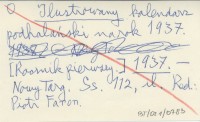 O Ilustrowany kalendarz
podhalański na rok 1937.
[Rocznik pierwszy.] 1937. —
Nowy Targ. Ss. 112, il. Red.
Piotr Faron.